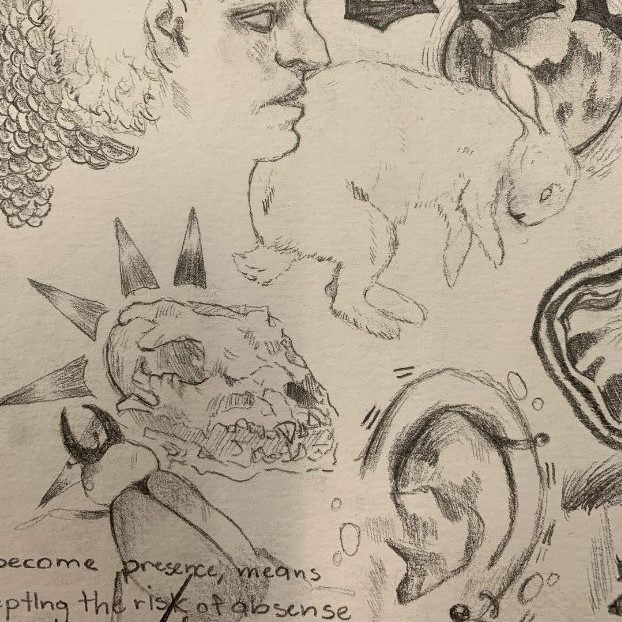 become presence, means
epting the risk of absense